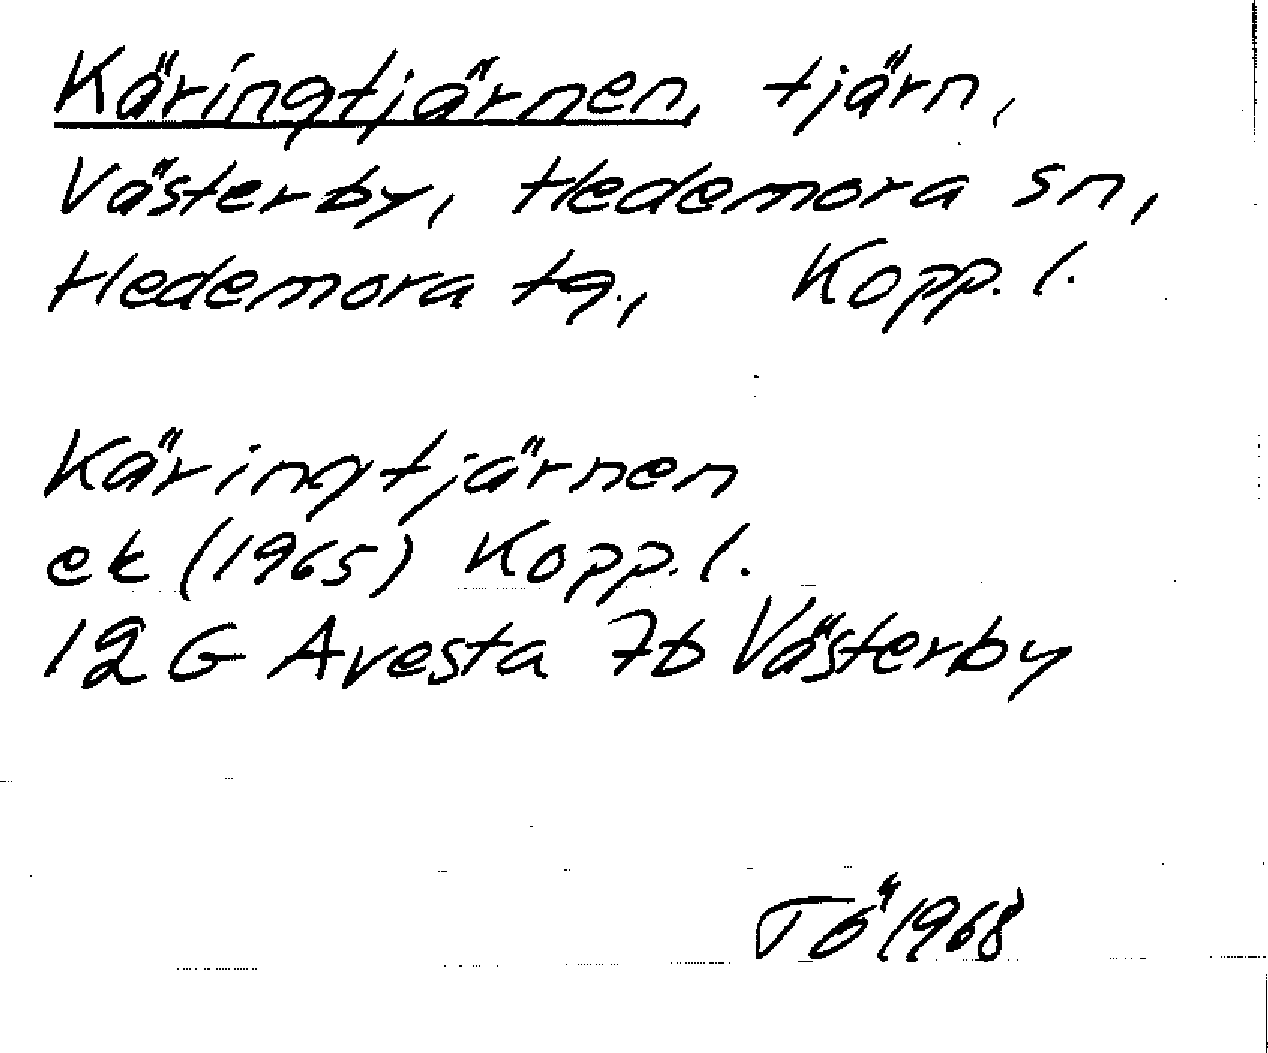 Käringtjärnen, tjärn,
Västerby, Hedemora sn,
Hedemora tg., Kopp. l.
Käringtjärnen
ek (1965) Kopp. l.
12 G Avesta 7b Västerby
TÖ 1968